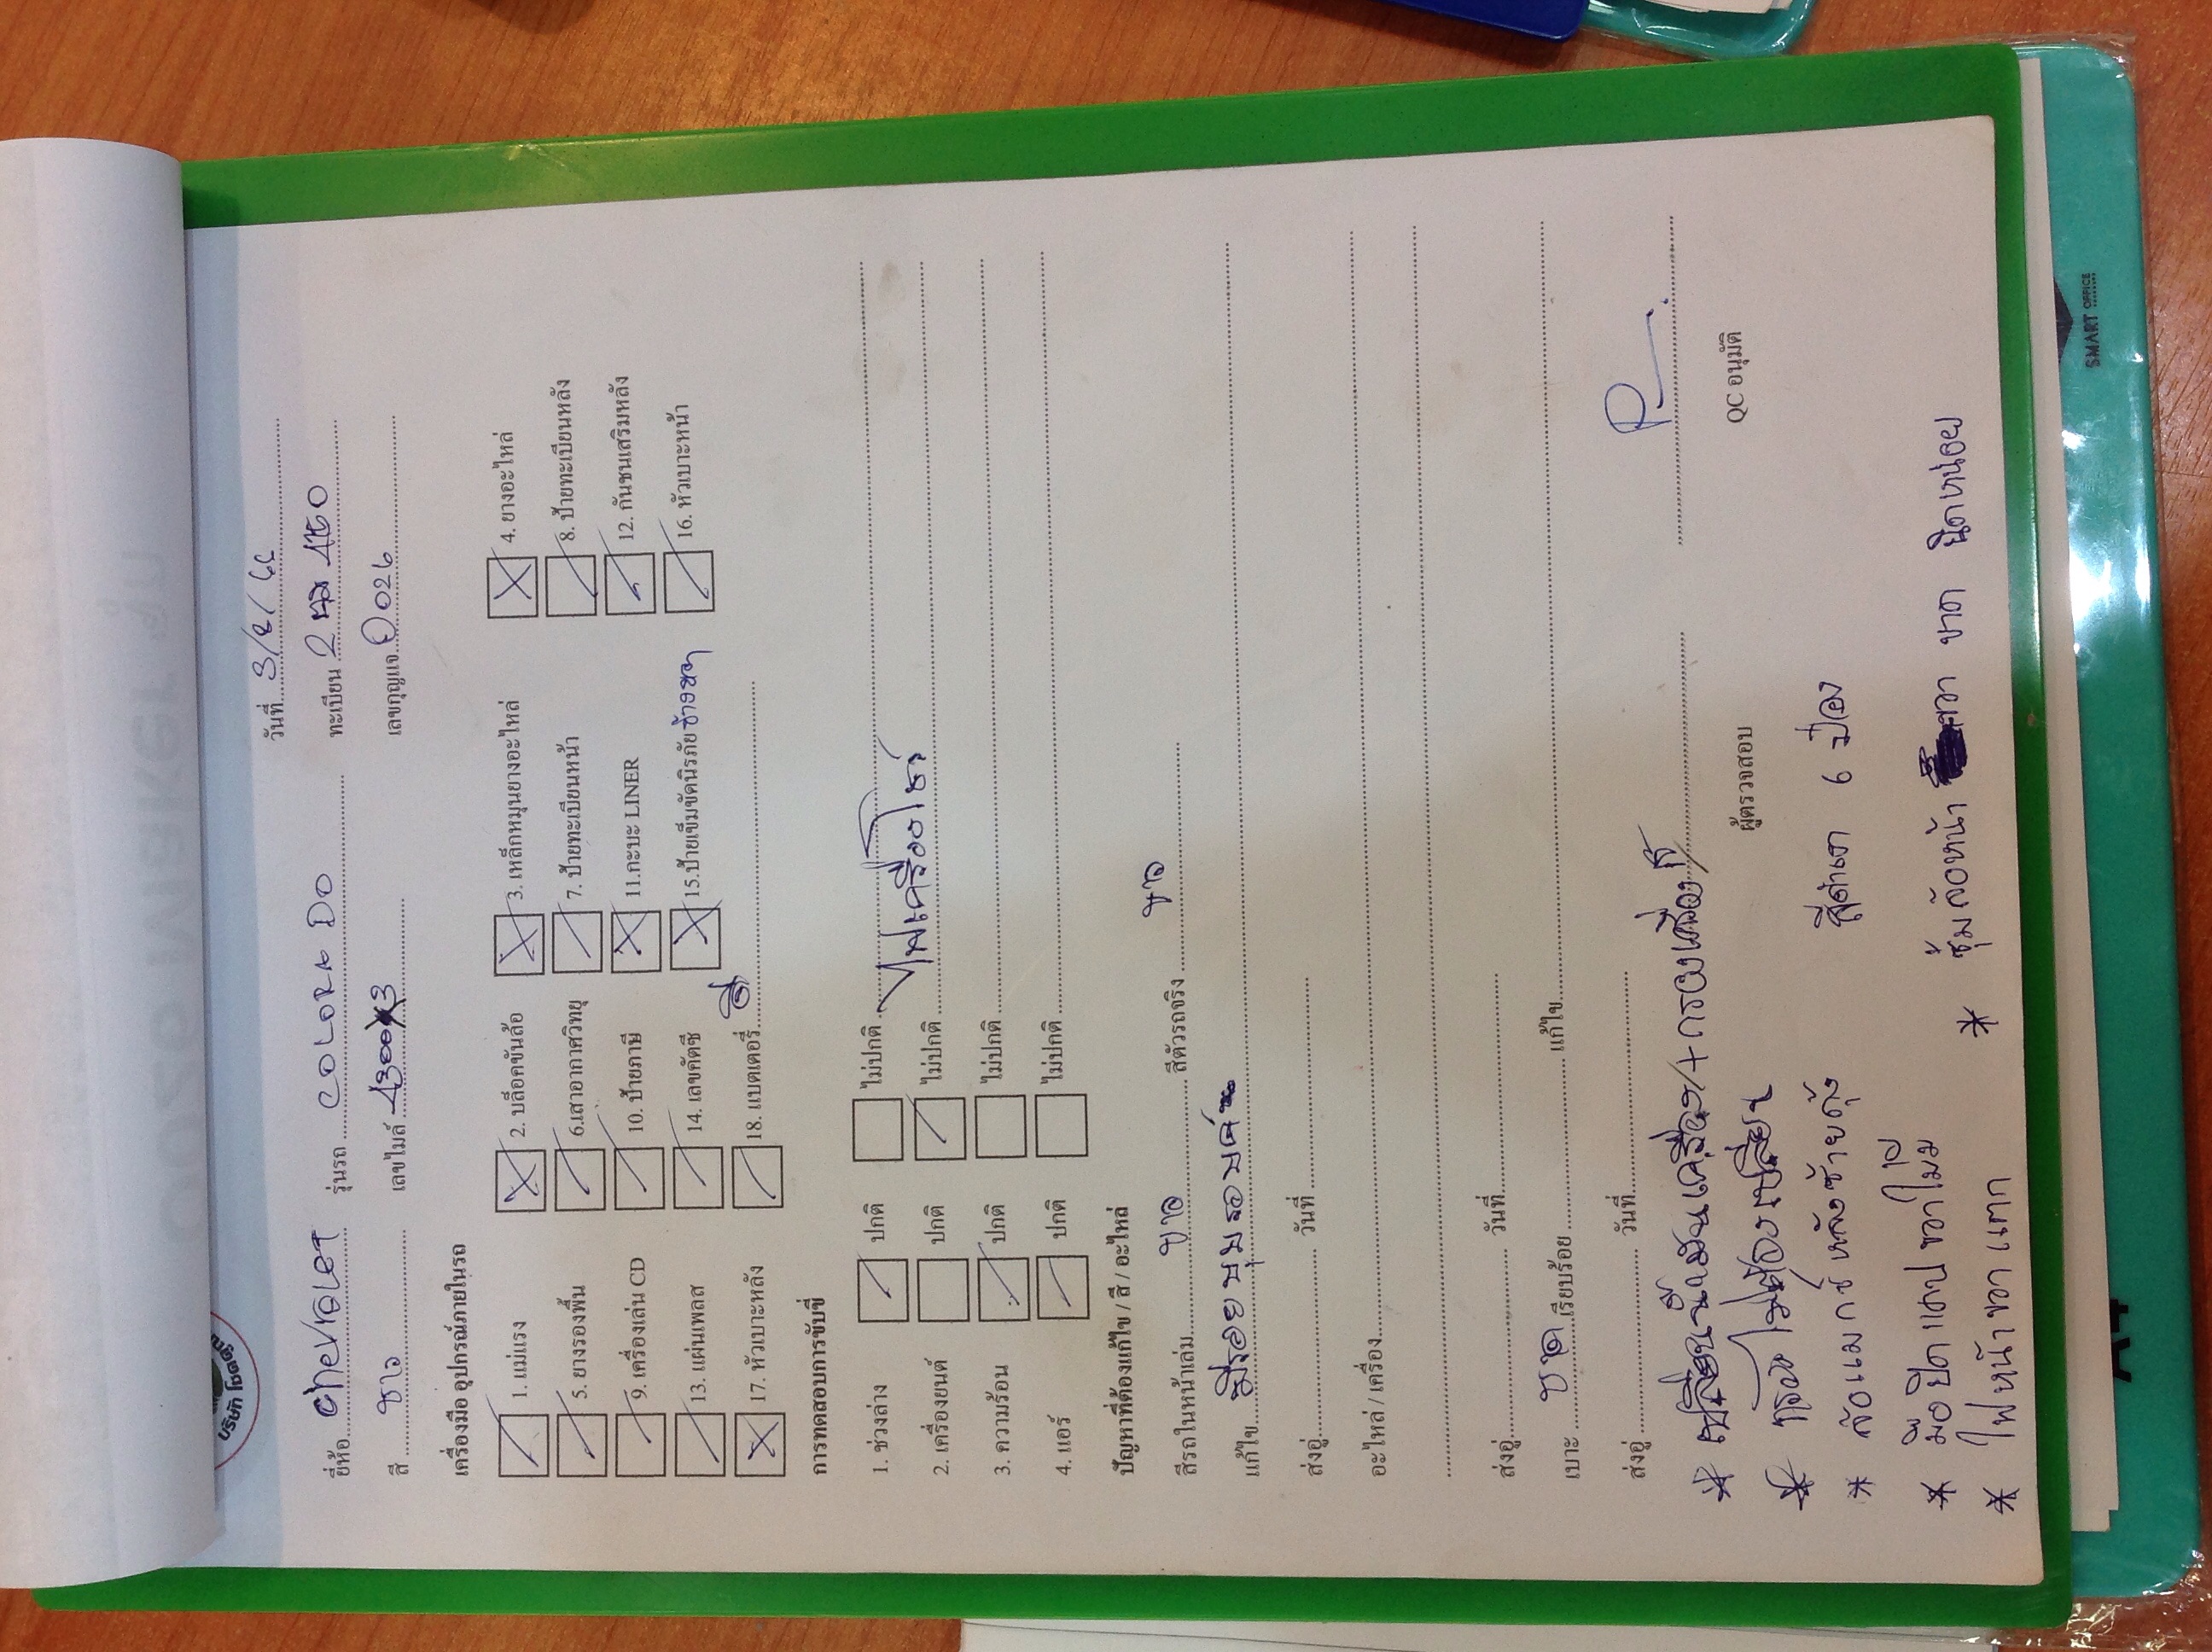 บริษัท โชตดี
วันที่ 3/2/66
ยี่ห้อ chevrolet รุ่นรถ COLORADO ทะเบียน 2
สี ขาว เลขไมล์ เลขกุญแจ 0026
เครื่องมือ อุปกรณ์ภายในรถ
1. แม่แรง 2. บล๊อคขันล้อ 3. เหล็กหมุนยางอะไหล่ 4. ยางอะไหล่
5. ยางรองพื้น 6.เสาอากาศวิทยุ 7. ป้ายทะเบียนหน้า 8. ป้ายทะเบียนหลัง
9. เครื่องเล่น CD 10. ป้ายภาษี 11.กะบะ LINER 12. กันชนเสริมหลัง
13. แผ่นเพลส 14. เลขคัตซี 15.ป้ายเข็มขัดนิรภัย ข้างขวา 16. หัวเบาะหน้า
17. หัวเบาะหลัง 18. แบตเตอรี่
การทดสอบการขับขี่
1. ช่วงล่าง ปกติ ไม่ปกติ
2. เครื่องยนต์ ปกติ ไม่ปกติ ไฟเครื่องโชว์
3. ความร้อน ปกติ ไม่ปกติ
4. แอร์ ปกติ ไม่ปกติ
ปัญหาที่ต้องแก้ไข / สี / อะไหล่
สีรถในหน้าเล่ม ขาว สีตัวรถจริง ขาว
แก้ไข มีรอยบุบรอบคัน
ส่งอู่ วันที่
อะไหล่ / เครื่อง
ส่งอู่ วันที่
เบาะ ขาด เรียบร้อย แก้ไข
ส่งอู่ วันที่
* เปลี่ยนน้ำมันเครื่อง + กรองเครื่อง
ผู้ตรวจสอบ QC อนุมัติ
* ไม่ต้องเปลี่ยน
* ล้อแมกซ์หลังซ้ายดุ้ง สีดำเงา 6 ป่อง
* มือปิดแคปขวาไม่มี
* ซุ้มล้อหน้า ขวา ขาด นิดหน่อย
* ไฟหน้าขวาแตก
SMART OFFICE
A4